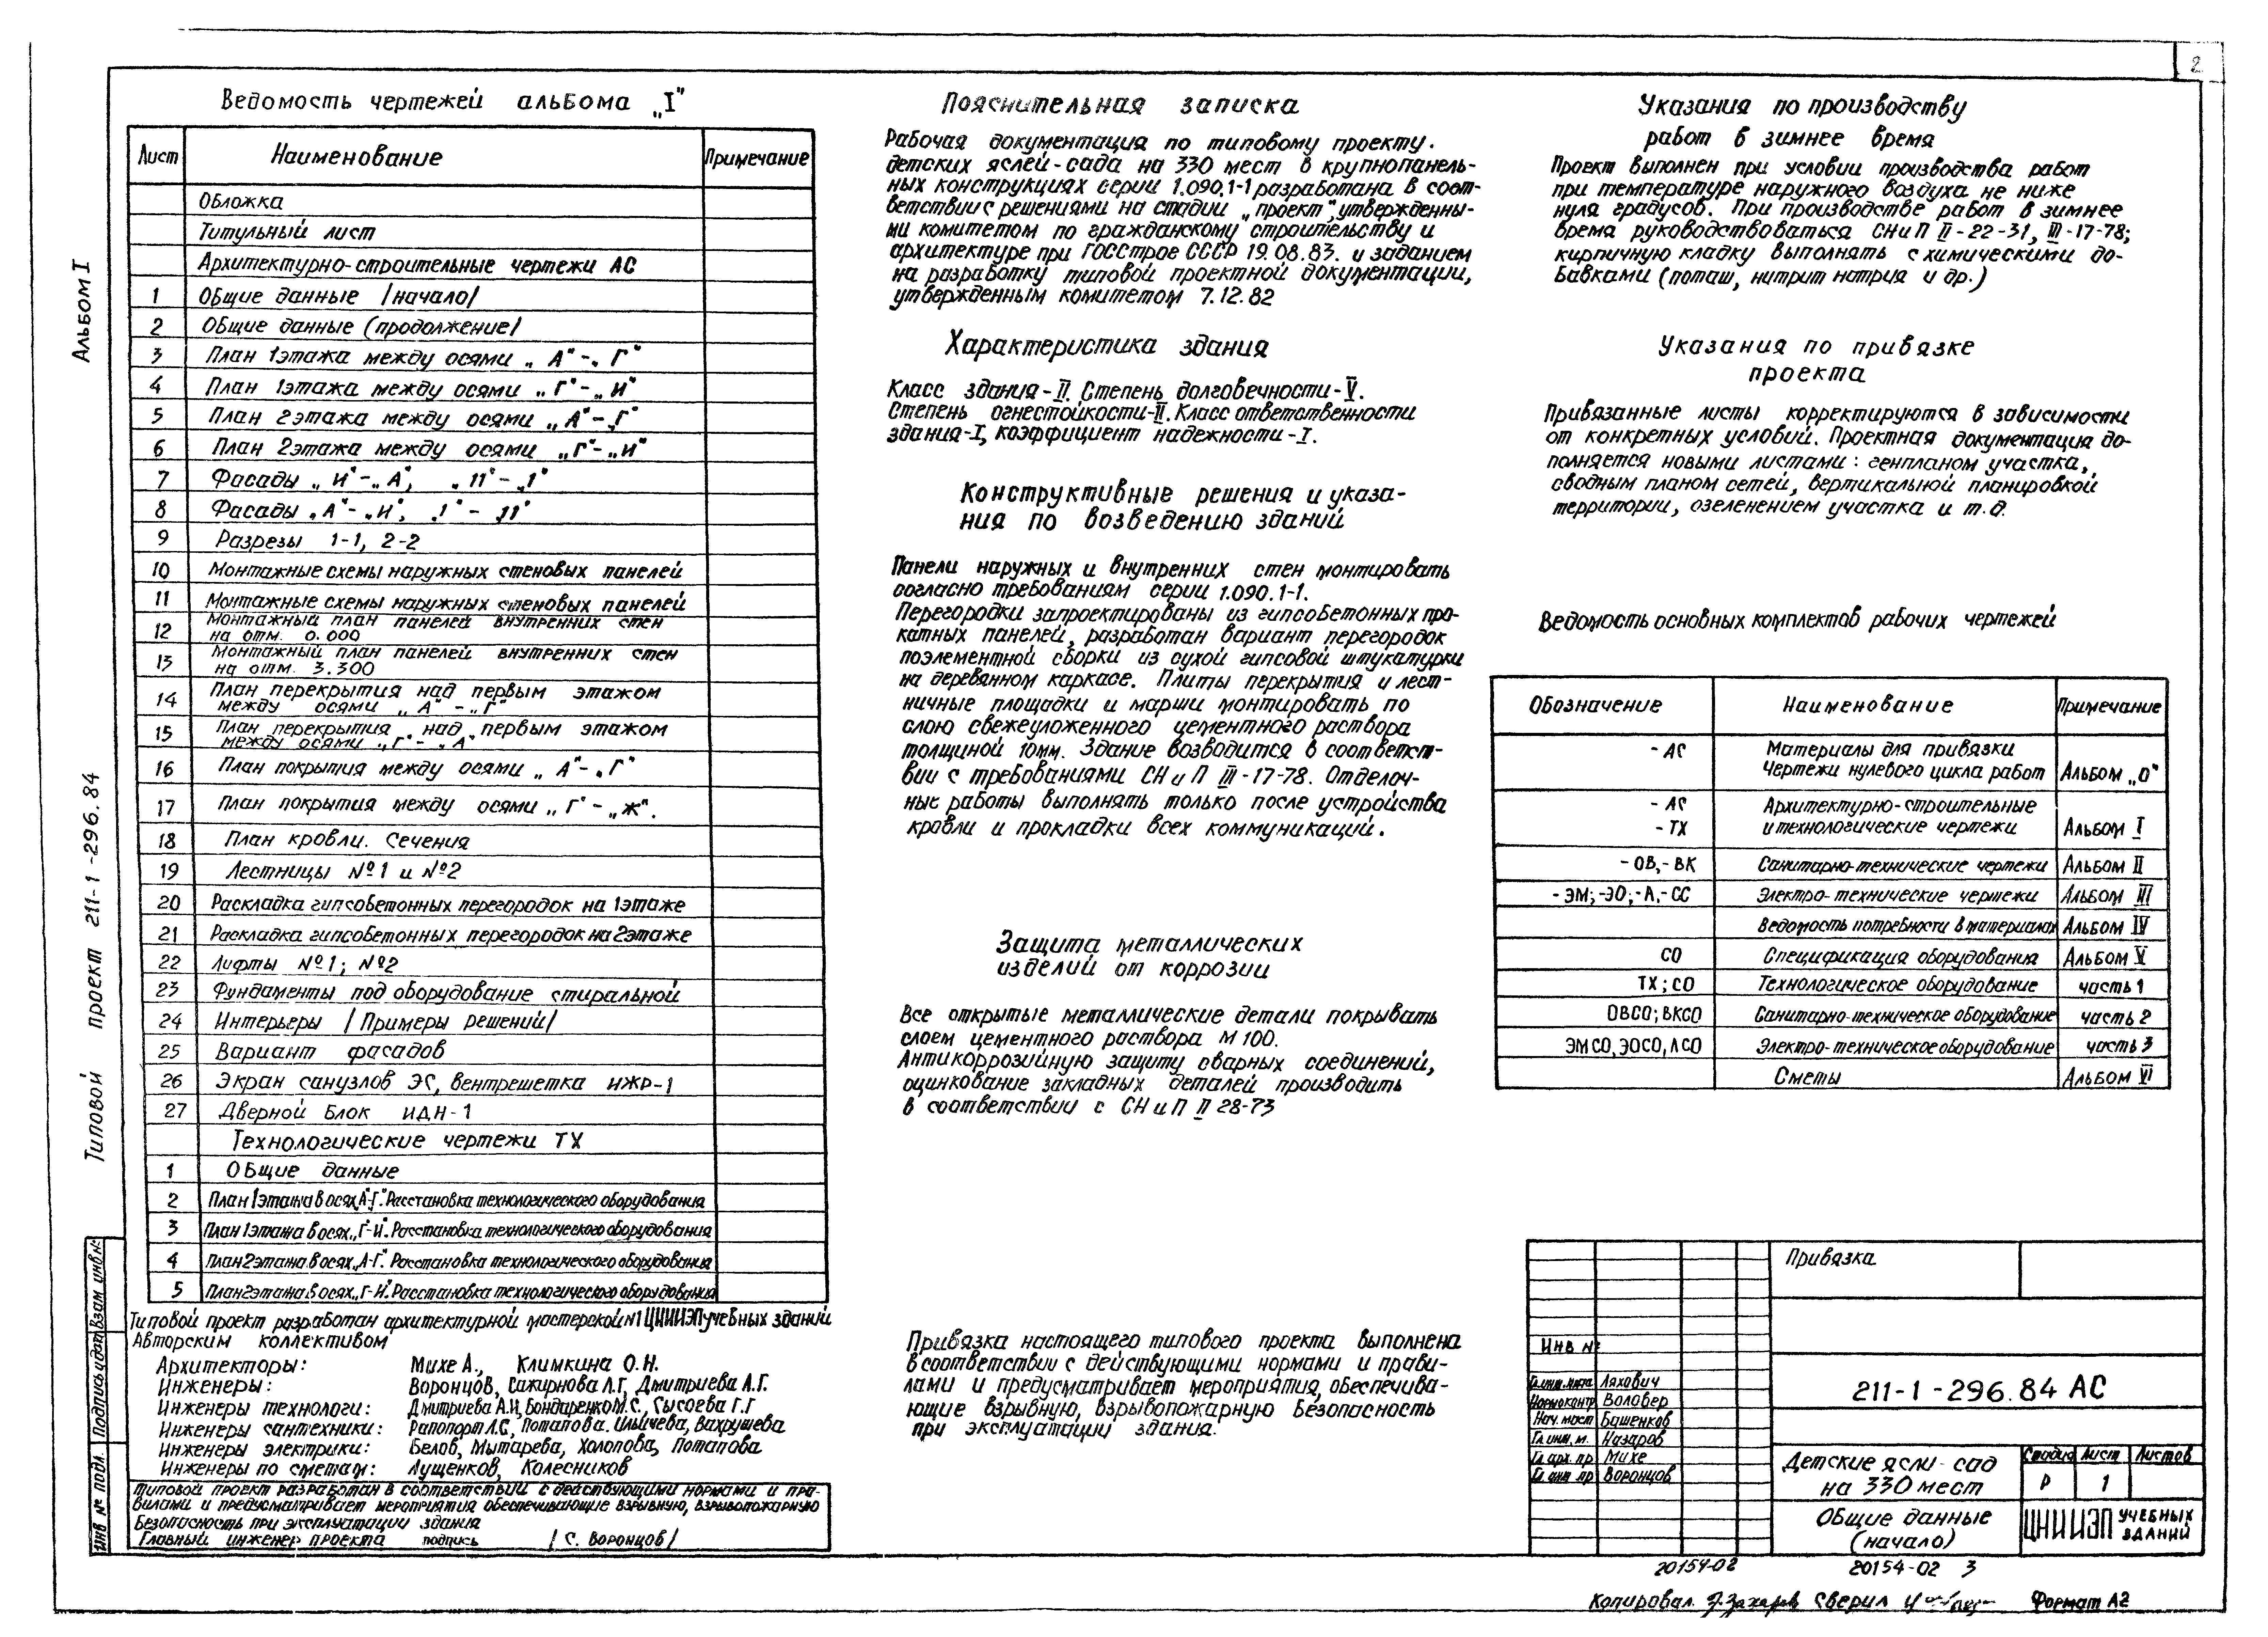 2
Альбом I
Типовой проект 211-1-296.84
Ведомость чертежей альбома „I"
Лист Наименование Примечание
Обложка
Титульный лист
Архитектурно-строительные чертежи АС
1 Общие данные /начало/
2 Общие данные (продолжение/
3 План 1этажа между осями „А"-„Г"
4 План 1этажа между осями „Г"-„И"
5 План 2этажа между осями „А"-„Г"
6 План 2этажа между осями „Г"-„И"
7 Фасады „И"-„А", „11"-„1"
8 Фасады „А"-„И", „1"-„11"
9 Разрезы 1-1, 2-2
10 Монтажные схемы наружных стеновых панелей
11 Монтажные схемы наружных стеновых панелей
12 Монтажный план панелей внутренних стен
на отм. 0.000
13 Монтажный план панелей внутренних стен
на отм. 3.300
14 План перекрытия над первым этажом
между осями „А"-„Г"
15 План перекрытия над первым этажом
между осями „Г"-„А"
16 План покрытия между осями „А"-„Г"
17 План покрытия между осями „Г"-„Ж".
18 План кровли. Сечения
19 Лестницы №1 и №2
20 Раскладка гипсобетонных перегородок на 1этаже
21 Раскладка гипсобетонных перегородок на 2этаже
22 Лифты №1; №2
23 Фундаменты под оборудование стиральной
24 Интерьеры /Примеры решений/
25 Вариант фасадов
26 Экран санузлов ЭС, вентрешетка ИЖР-1
27 Дверной блок ИДН-1
Технологические чертежи ТХ
1 Общие данные
2 План 1этажа в осях„А-Г". Расстановка технологического оборудования
3 План 1этажа в осях„Г-И". Расстановка технологического оборудования
4 План 2этажа в осях„А-Г". Расстановка технологического оборудования
5 План 2этажа в осях„Г-И". Расстановка технологического оборудования
Типовой проект разработан архитектурной мастерской №1 ЦНИИЭП учебных зданий
Авторским коллективом
Архитекторы: Михе А., Климкина О.Н.
Инженеры: Воронцов, Сажирнова Л.Г, Дмитриева А.Г.
Инженеры технологи: Дмитриева А.И, Бондаренко М.С., Сысоева Г.Г
Инженеры сантехники: Рапопорт Л.С, Потапова. Ильичева, Вахрушева
Инженеры электрики: Белов, Мытарева, Холопова, Потапова
Инженеры по сметам: Лущенков, Колесников
Типовой проект разработан в соответствии с действующими нормами и пра-
вилами и предусматривает мероприятия обеспечивающие взрывную, взрывопожарную
безопасность при эксплуатации здания
Главный инженер проекта подпись /С. Воронцов/
Инв № подл. Подпись и дата Взам инв №
Пояснительная записка
Рабочая документация по типовому проекту.
детских яслей-сада на 330 мест в крупнопанель-
ных конструкциях серии 1.090.1-1 разработана в соот-
ветствии с решениями на стадии „проект", утвержденны-
ми комитетом по гражданскому строительству и
архитектуре при ГОССтрое СССР 19.08.83. и заданием
на разработку типовой проектной документации,
утвержденным комитетом 7.12.82
Характеристика здания
Класс здания-II. Степень долговечности-V.
Степень огнестойкости-II. Класс ответственности
здания-I, коэффициент надежности-I.
Конструктивные решения и указа-
ния по возведению зданий
Панели наружных и внутренних стен монтировать
согласно требованиям серии 1.090.1-1.
Перегородки запроектированы из гипсобетонных про-
катных панелей, разработан вариант перегородок
поэлементной сборки из сухой гипсовой штукатурки
на деревянном каркасе. Плиты перекрытия и лест-
ничные площадки и марши монтировать по
слою свежеуложенного цементного раствора
толщиной 10мм. Здание возводится в соответст-
вии с требованиями СНиП III-17-78. Отделоч-
ные работы выполнять только после устройства
кровли и прокладки всех коммуникаций.
Защита металлических
изделий от коррозии
Все открытые металлические детали покрывать
слоем цементного раствора М 100.
Антикоррозийную защиту сварных соединений,
оцинкование закладных деталей производить
в соответствии с СНиП II 28-73
Привязка настоящего типового проекта выполнена
в соответствии с действующими нормами и прави-
лами и предусматривает мероприятия, обеспечива-
ющие взрывную, взрывопожарную безопасность
при эксплуатации здания.
Указания по производству
работ в зимнее время
Проект выполнен при условии производства работ
при температуре наружного воздуха не ниже
нуля градусов. При производстве работ в зимнее
время руководствоваться СНиП II-22-31, III-17-78;
кирпичную кладку выполнять с химическими до-
бавками (поташ, нитрит натрия и др.)
Указания по привязке
проекта
Привязанные листы корректируются в зависимости
от конкретных условий. Проектная документация до-
полняется новыми листами: генпланом участка,
сводным планом сетей, вертикальной планировкой
территории, озеленением участка и т.д.
Ведомость основных комплектов рабочих чертежей
Обозначение Наименование Примечание
-АС Материалы для привязки
Чертежи нулевого цикла работ Альбом „О"
-АС Архитектурно-строительные
-ТХ и технологические чертежи Альбом I
-ОВ,-ВК Санитарно-технические чертежи Альбом II
-ЭМ;-ЭО;-А,-СС Электро-технические чертежи Альбом III
Ведомость потребности в материалах Альбом IV
СО Спецификация оборудования Альбом V
ТХ; СО Технологическое оборудование часть 1
ОВСО; ВКСО Санитарно-техническое оборудование часть 2
ЭМСО, ЭОСО, АСО Электро-техническое оборудование часть 3
Сметы Альбом VI
Привязка
Инв №
Гл.инж.инта Ляхович
Нормоконтр Воловер
Нач. маст Башенков
Гл инж, м. Назаров
Гл арх. пр Михе
Гл инж пр Воронцов
211-1-296.84 АС
Детские ясли-сад
на 330 мест
Стадия Лист Листов
Р 1
Общие данные
(начало)
ЦНИИЭП учебных
зданий
20154-02
20154-02 3
Копировал. Захаров Сверил Формат А2